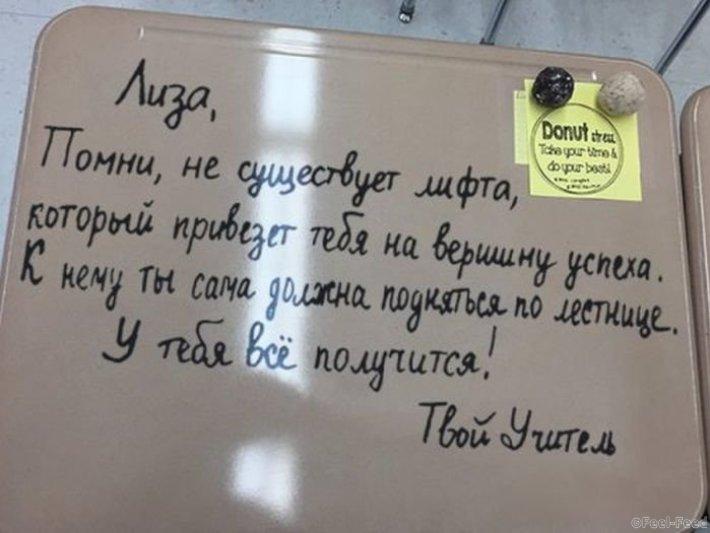 Лиза,
Помни, не существует лифта,
который привезет тебя на вершину успеха.
К нему ты сама должна подняться по лестнице.
У тебя всё получится!
Твой Учитель
Donut stress
Take your time &
do your best!
©Feel-Feed